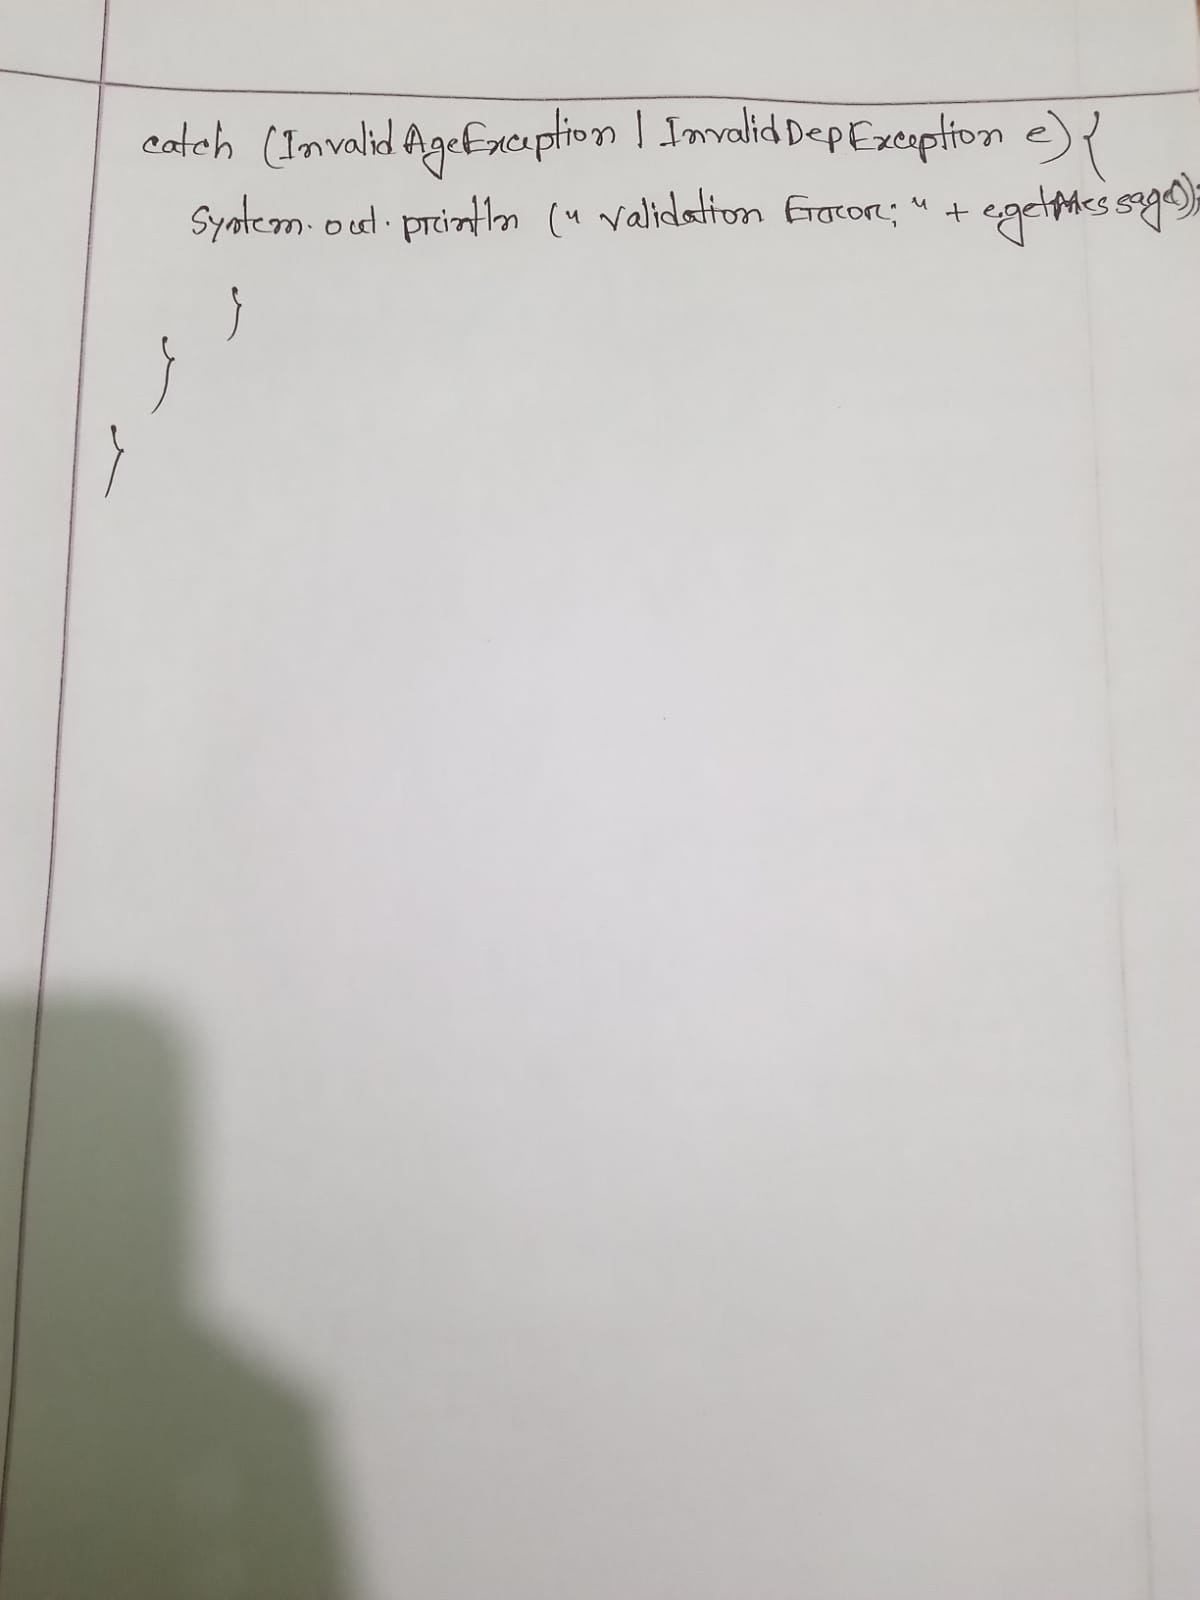 catch (InvalidAgeException | InvalidDepException e) {
System.out.println (" validation Error; " + e.getMessage());
}
}
}